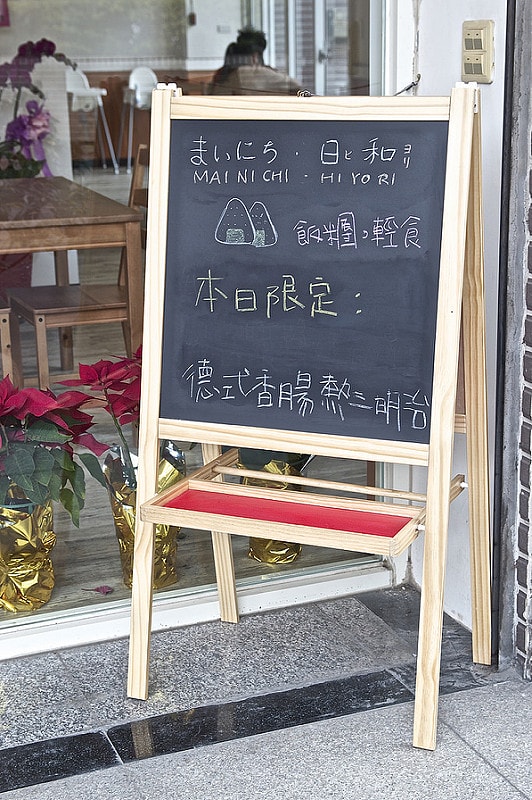 まいにち・日と和ヨリ
MAI NI CHI - HI YO RI
飯糰、輕食
本日限定：
德式香腸熱三明治